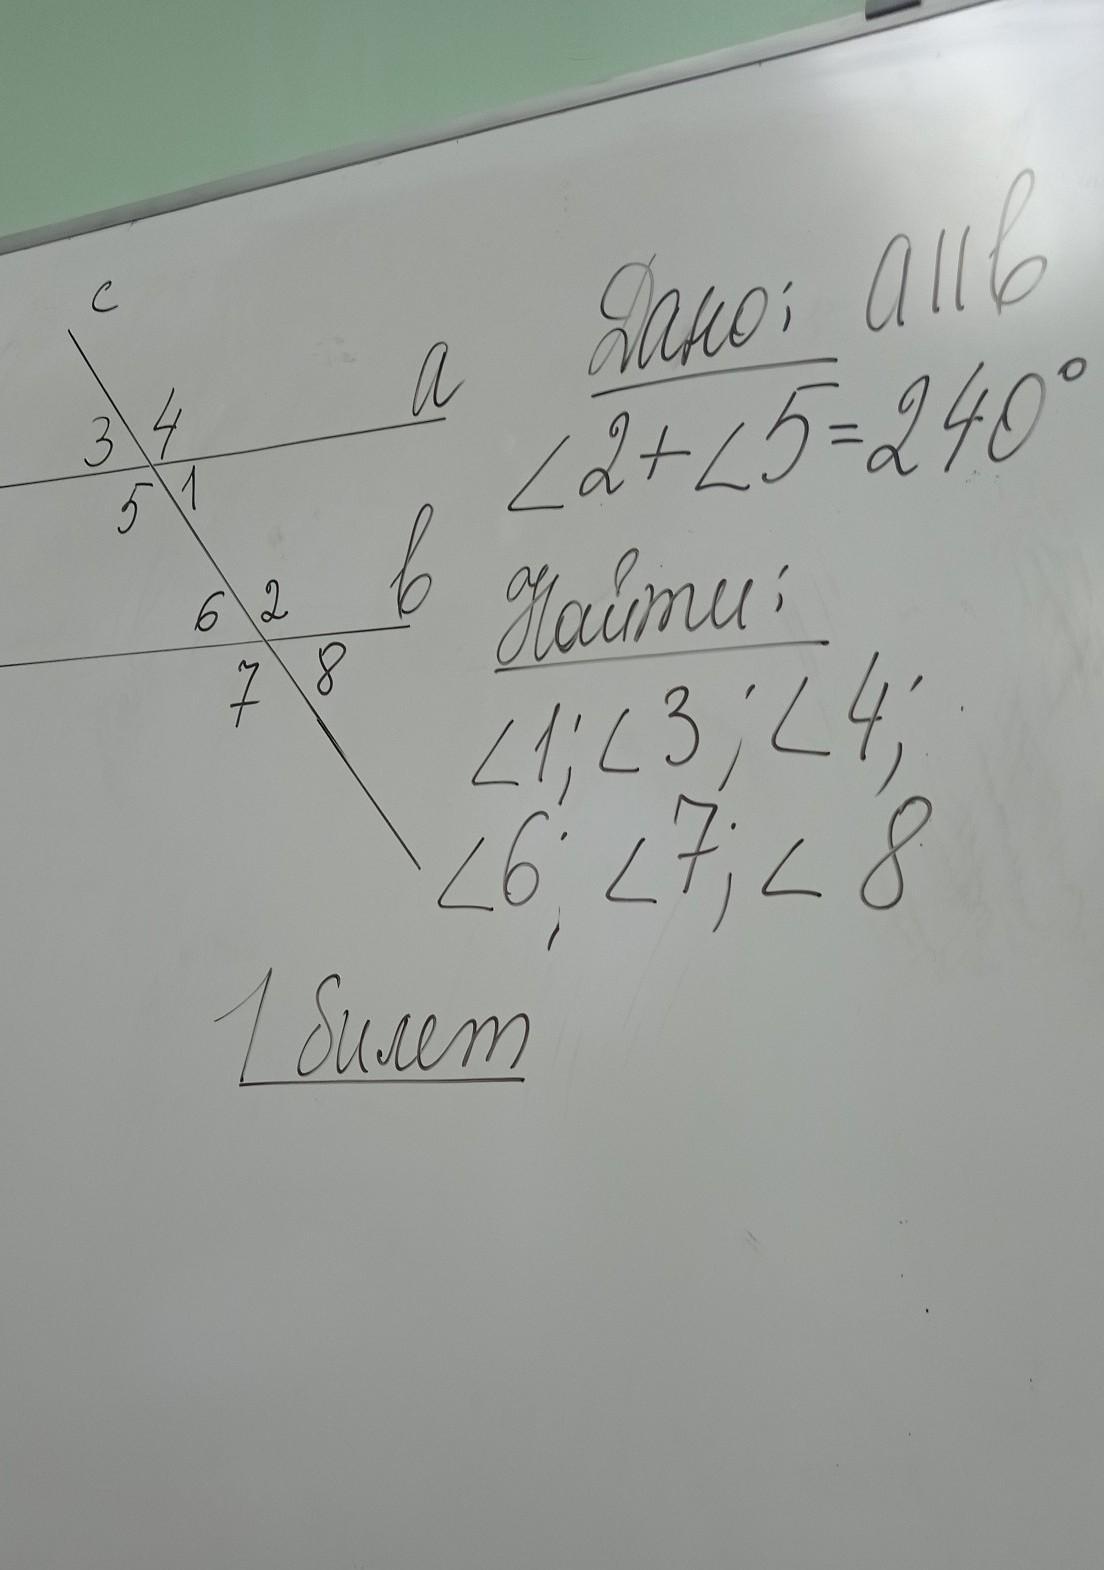 c
a
3 4
5 1
b
6 2
7 8
Дано: a||b
∠2+∠5=240°
Найти:
∠1; ∠3; ∠4;
∠6; ∠7; ∠8
1 билет